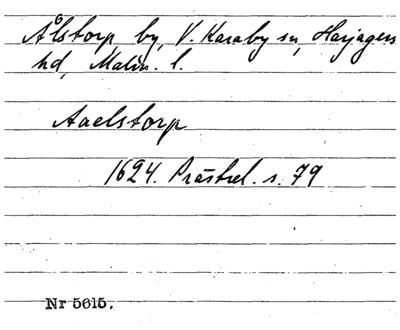 Ålstorp by, V. Karaby sn, Harjagers
hd, Malm. l.
Aaelstorp
1624. Prästrel. s. 79
Nr 5615.